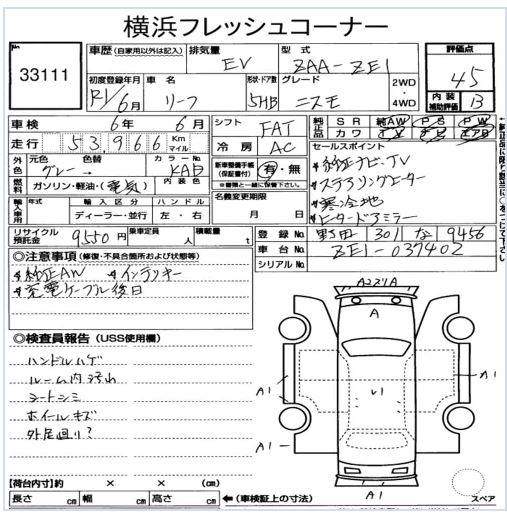 横浜フレッシュコーナー
No
33111
車歴 (自家用以外は記入)
排気量
EV
型式
ZAA-ZE1
評価点
4.5
内装
補助評価
B
初度登録年月
R1/6月
車名
リーフ
形状・ドア数
5HB
グレード
ニスモ
2WD
4WD
車検
6年 6月
走行
53,966
Km
マイル
シフト
FAT
冷房
AC
純正品
SR 純AW PS PW
カワ ナビ TV エアB
セールスポイント
*純正ナビ、TV
*ステアリングヒーター
*寒冷地
*ヒータードアミラー
外色
元色
グレー
色替
→
カラーNo
KAD
燃料
ガソリン・軽油・(電気)
内装色
新車整備手帳
(保証書付)
有・無
※書類と一緒に保管下さい
名義変更期限
月 日
輸入車用
年式
輸入区分
ディーラー・並行
ハンドル
左・右
リサイクル
預託金
9550円
乗車定員
人
積載量
t
登録No.
野田 301 な 9456
車台No.
ZE1-037402
シリアルNo.
◎注意事項 (修復・不具合箇所および状態等)
*純正AW *インテリキー
*充電ケーブル後日
◎検査員報告 (USS使用欄)
ハンドルハゲ
ルーム内汚れ
シートシミ
ホイールキズ
外足廻り?
A2ﾇﾘA
A
U1
A1
A1
A1
A1
スペア
【荷台内寸】約 × × (cm)
長さ cm 幅 cm 高さ cm
←(車検証上の寸法)